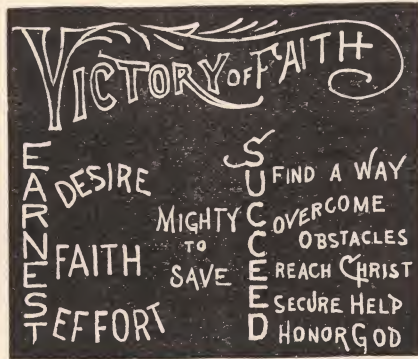 VICTORY OF FAITH
EARNEST
DESIRE
FAITH
EFFORT
MIGHTY
TO
SAVE
SUCCEED
FIND A WAY
OVERCOME
OBSTACLES
REACH CHRIST
SECURE HELP
HONOR GOD